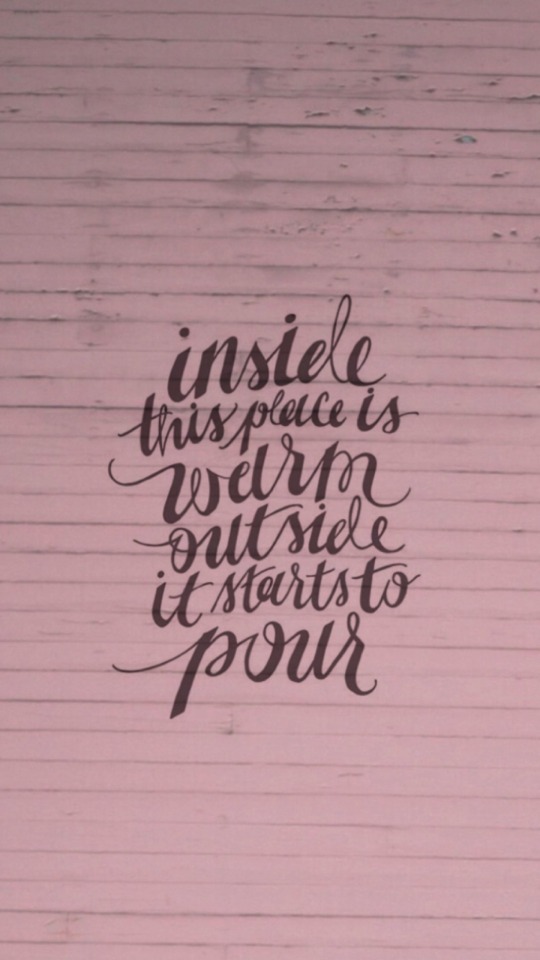 inside
this place is
warm
outside
it starts to
pour